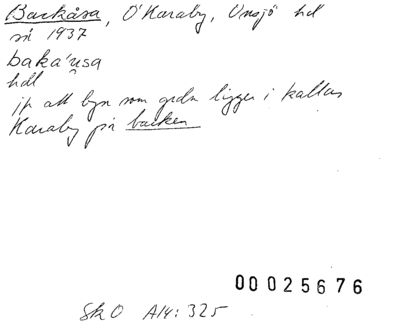 Backåsa, Ö Karaby, Onsjö hd
så 1937
baka'usa
hdl
jfr att byn som grdn ligger i kallas
Karaby på backen
00025676
SkO A14: 325